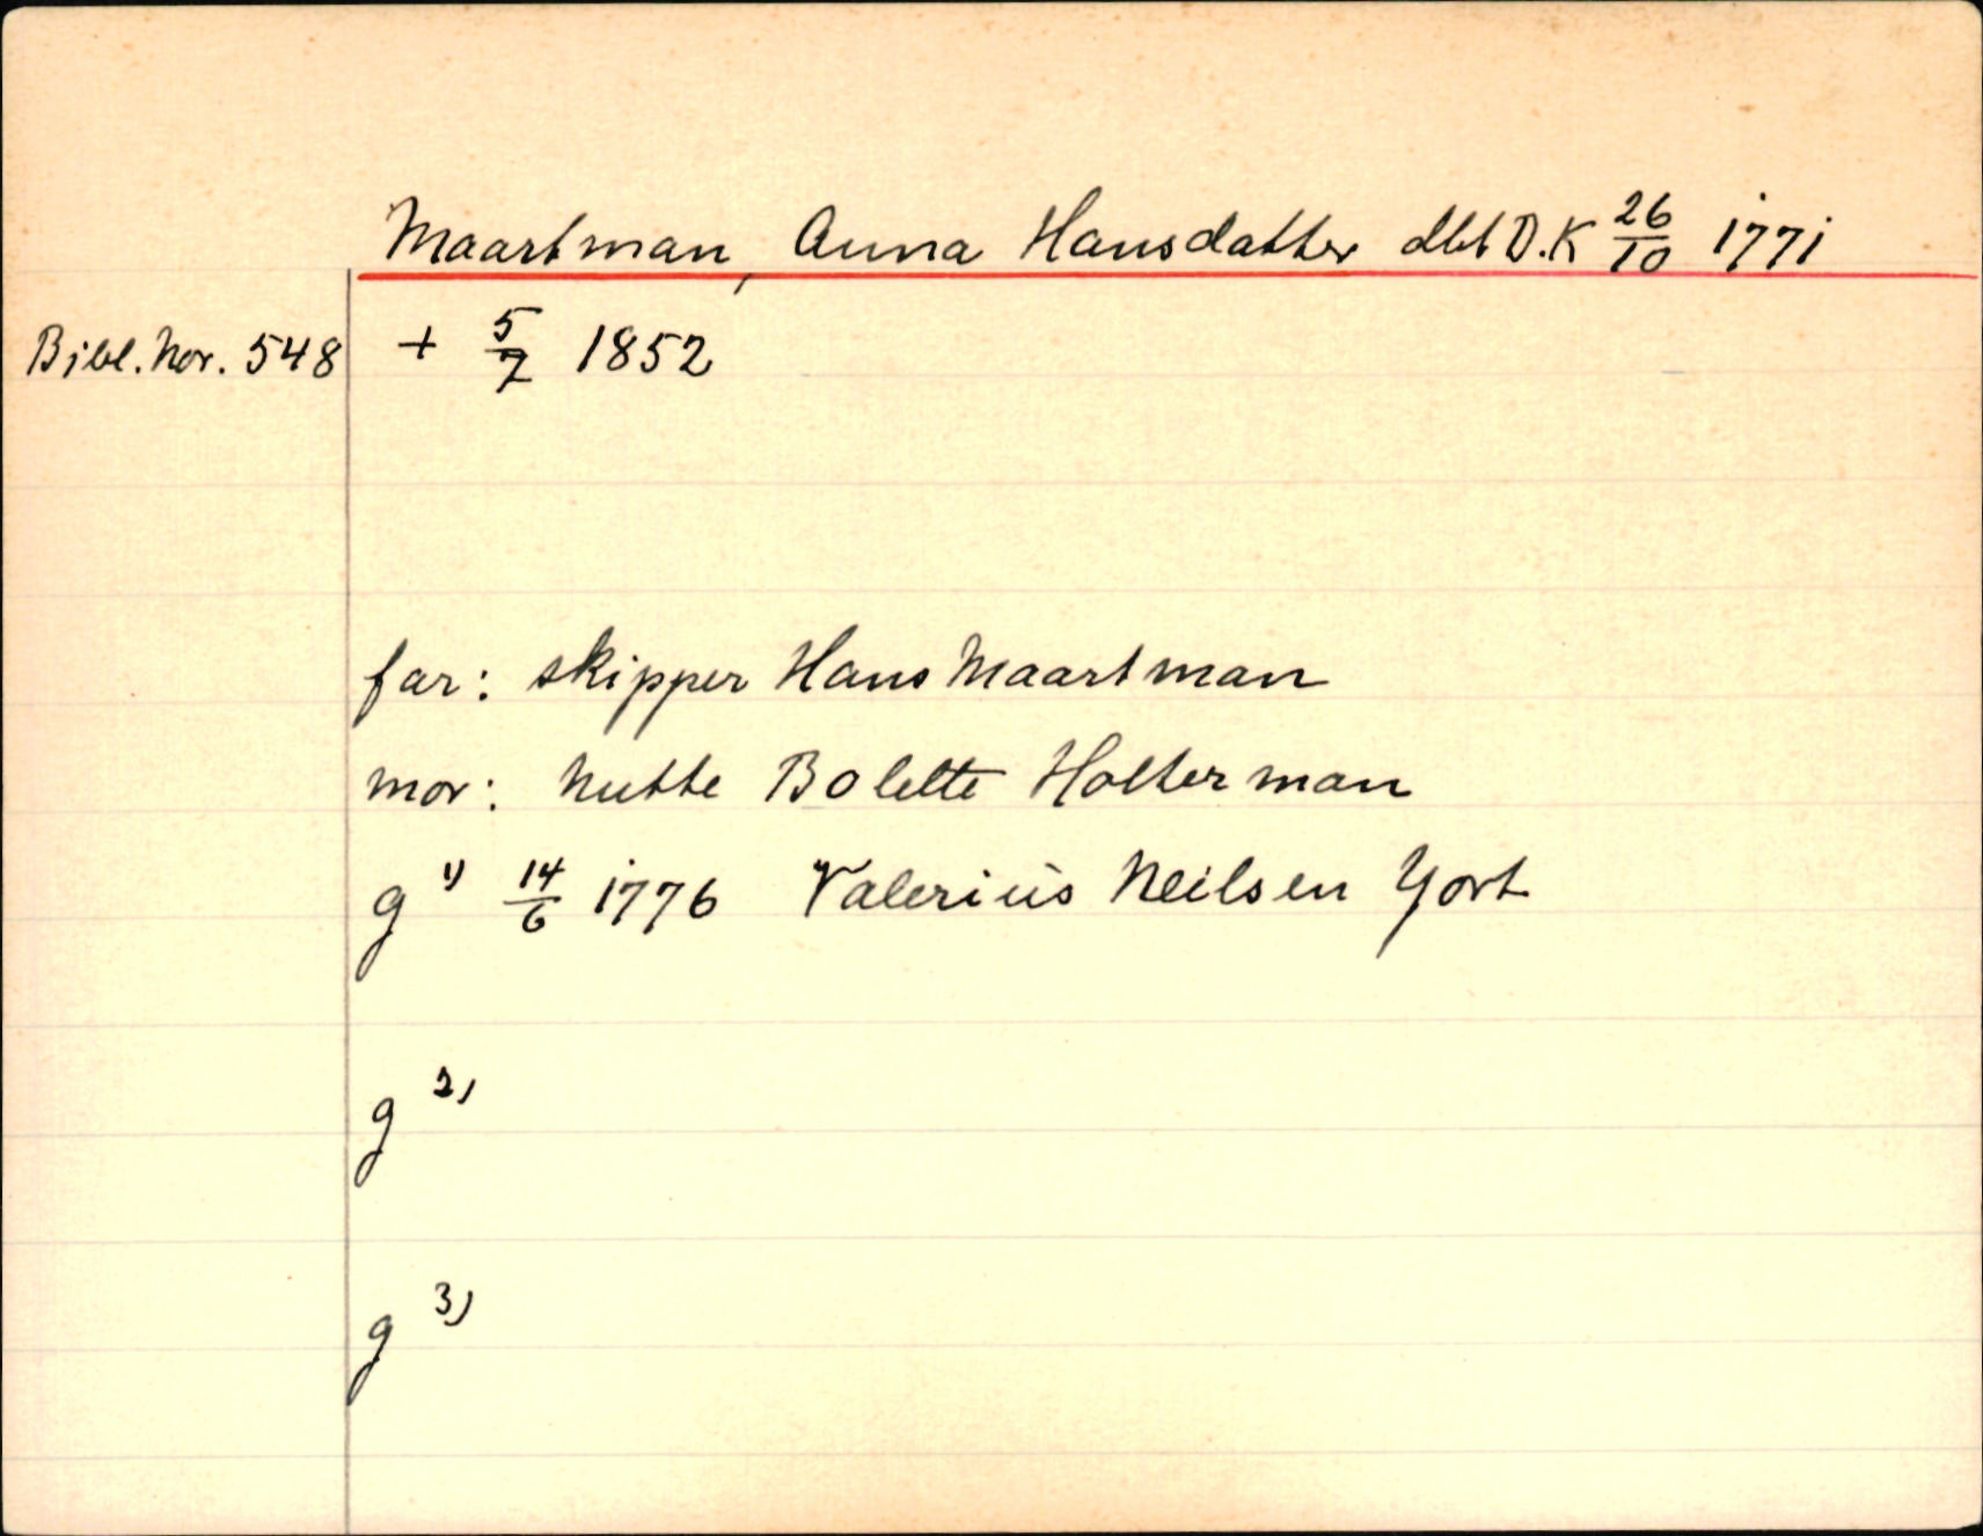 Maartman, Anna Hansdatter dbt D.K 26/10 1771
Bibl. Nor. 548 + 5/7 1852
far: skipper Hans Maartman
mor: Mette Bolette Holterman
g 1) 14/6 1776 Valerius Neilsen Yort
g 2)
g 3)